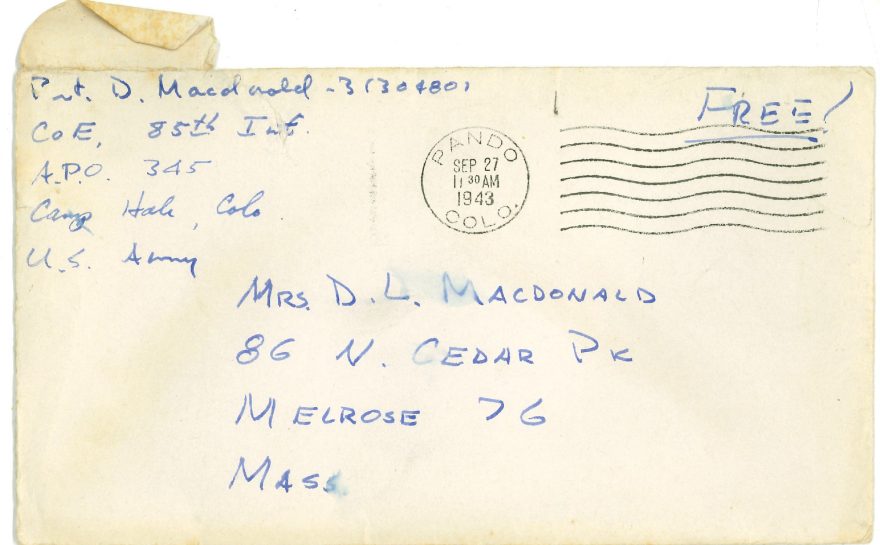 Pvt. D. Macdonald - 31304801
Co E, 85th Inf.
A.P.O. 345
Camp Hale, Colo
U.S. Army
FREE!
PANDO
SEP 27
11 30 AM
1943
COLO.
MRS. D. L. MACDONALD
86 N. CEDAR PK
MELROSE 76
MASS.